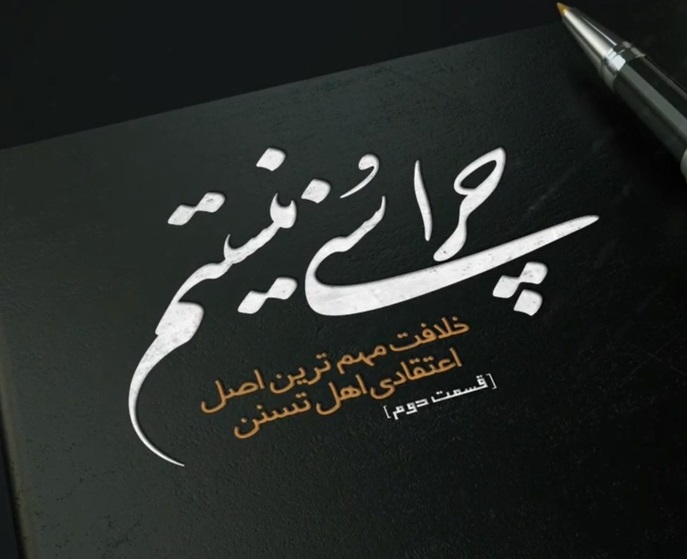 چرا سُنی نیستم
خلافت مهم ترین اصل
اعتقادی اهل تسنن
[قسمت دوم]